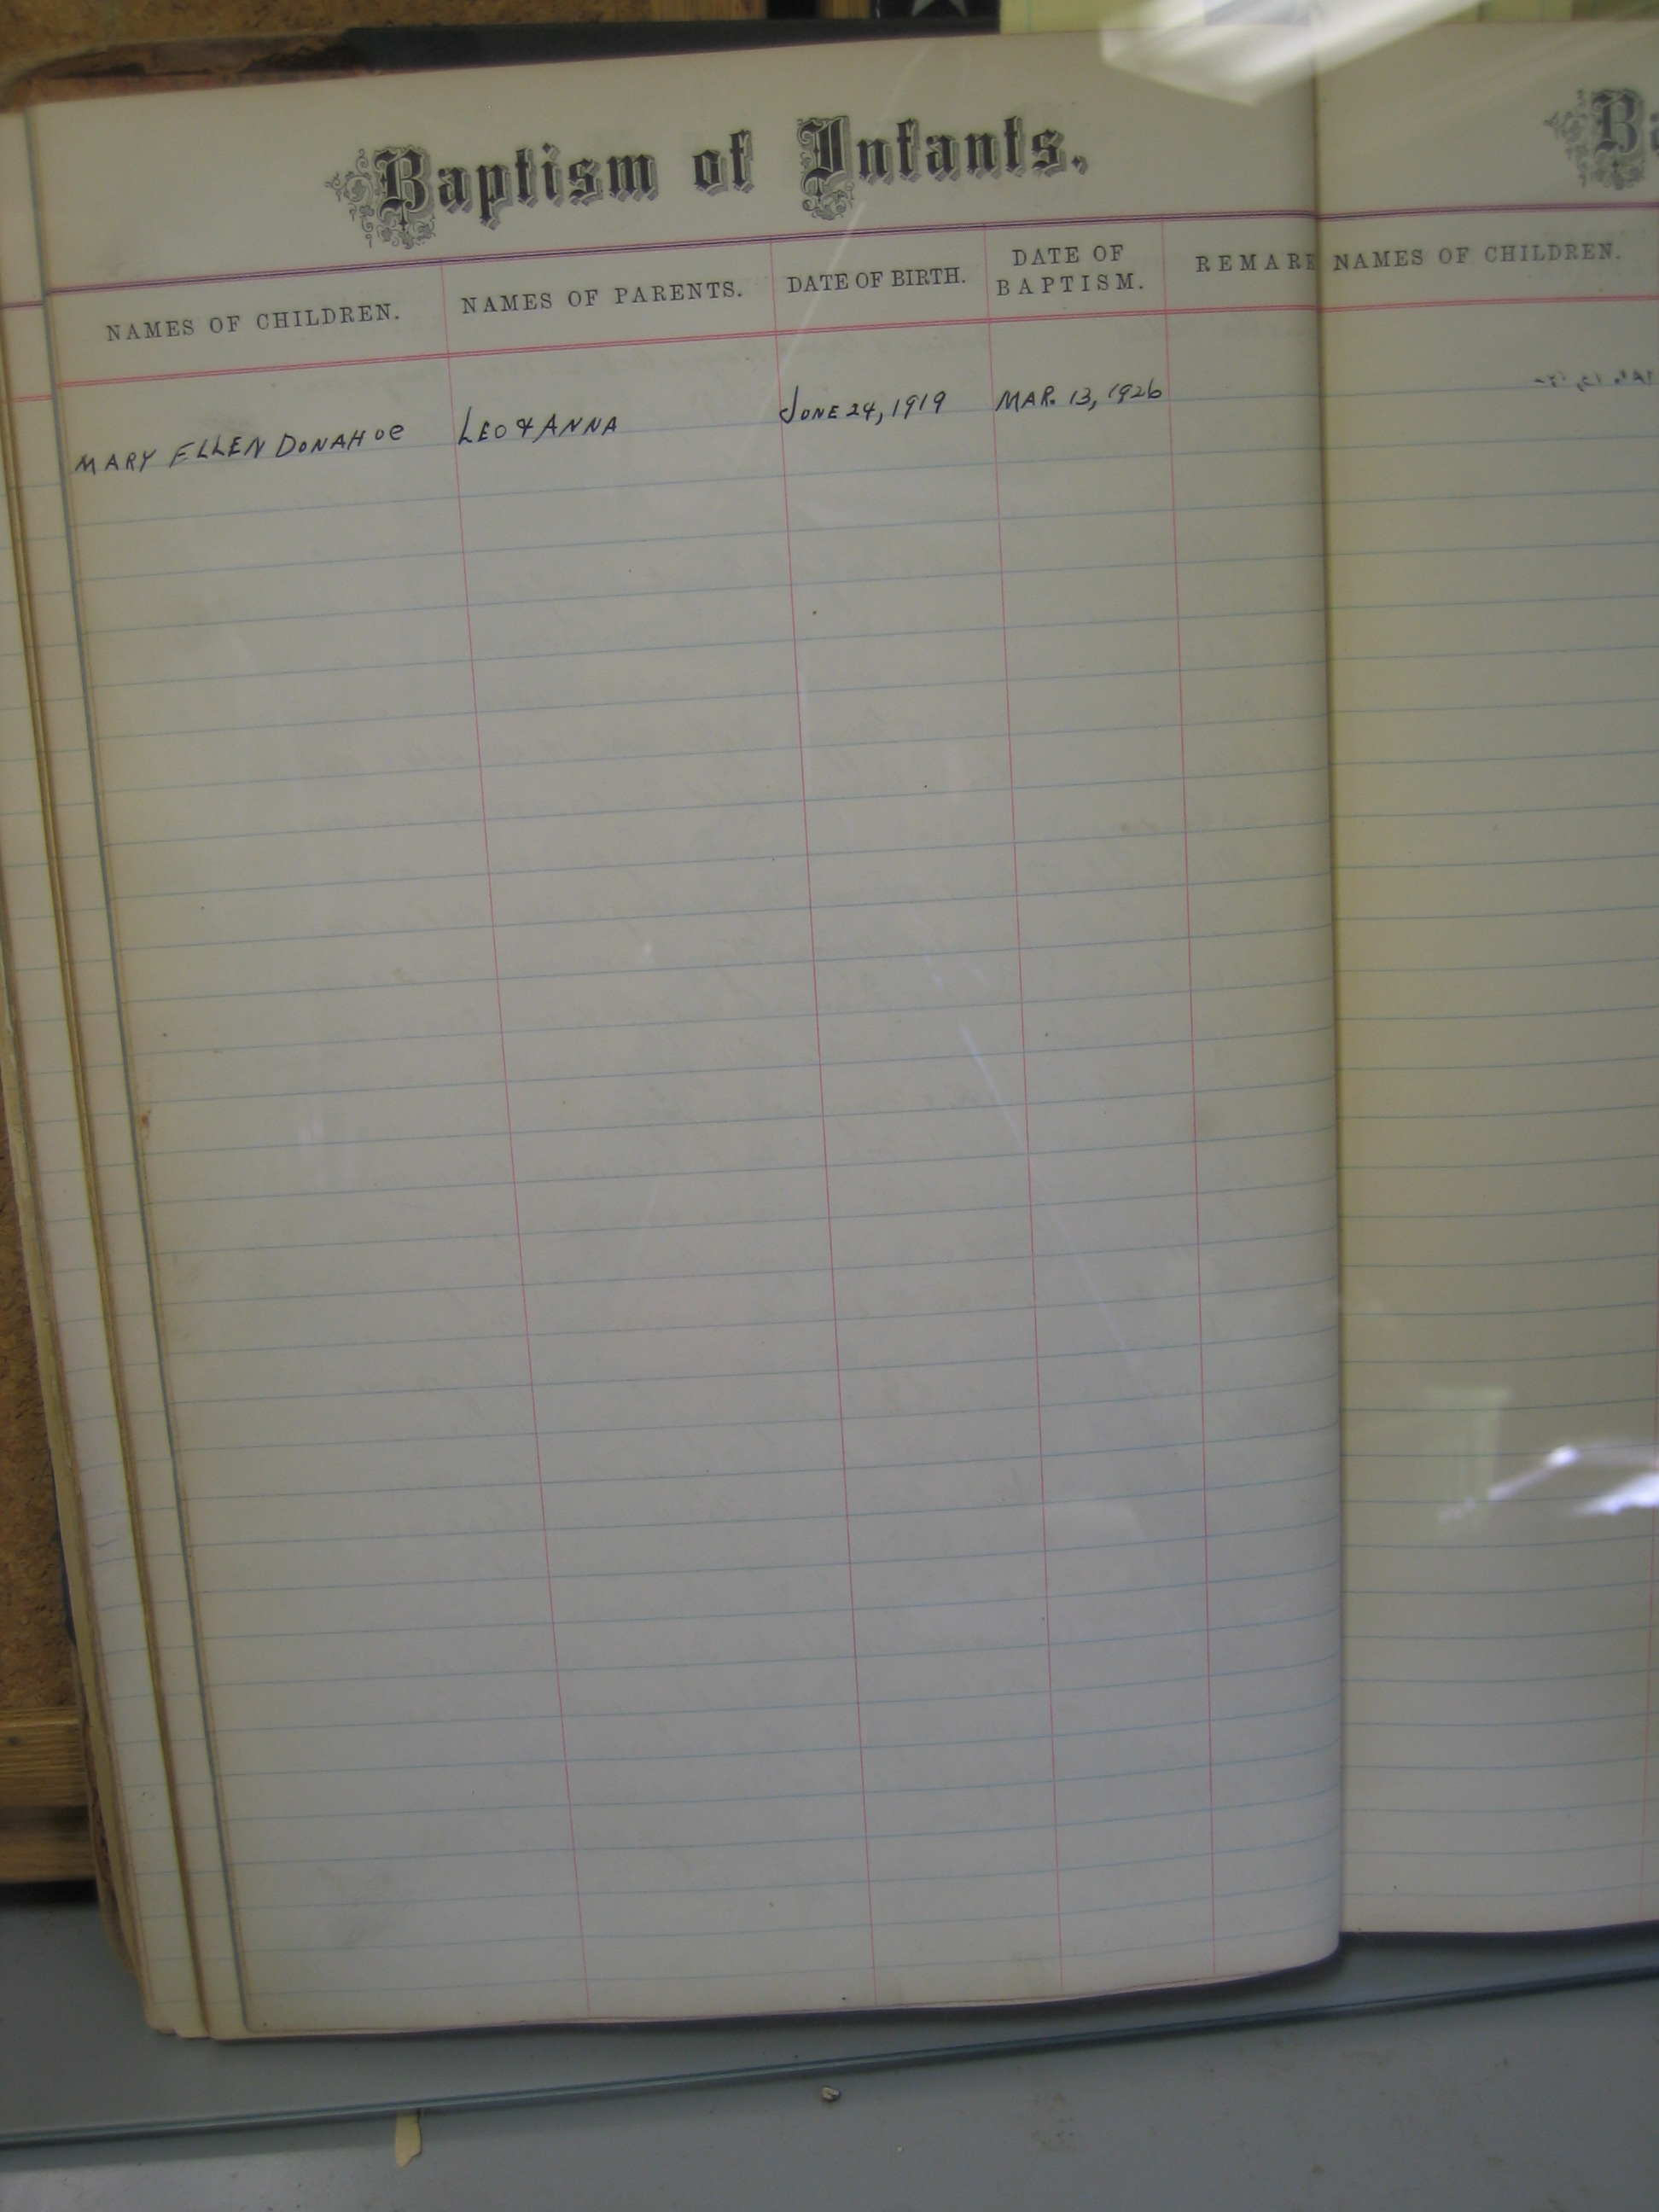 Baptism of Infants.
NAMES OF CHILDREN. NAMES OF PARENTS. DATE OF BIRTH. DATE OF BAPTISM. REMARK
MARY ELLEN DONAHOE LEO & ANNA JUNE 24, 1919 MAR. 13, 1926
Ba
NAMES OF CHILDREN.